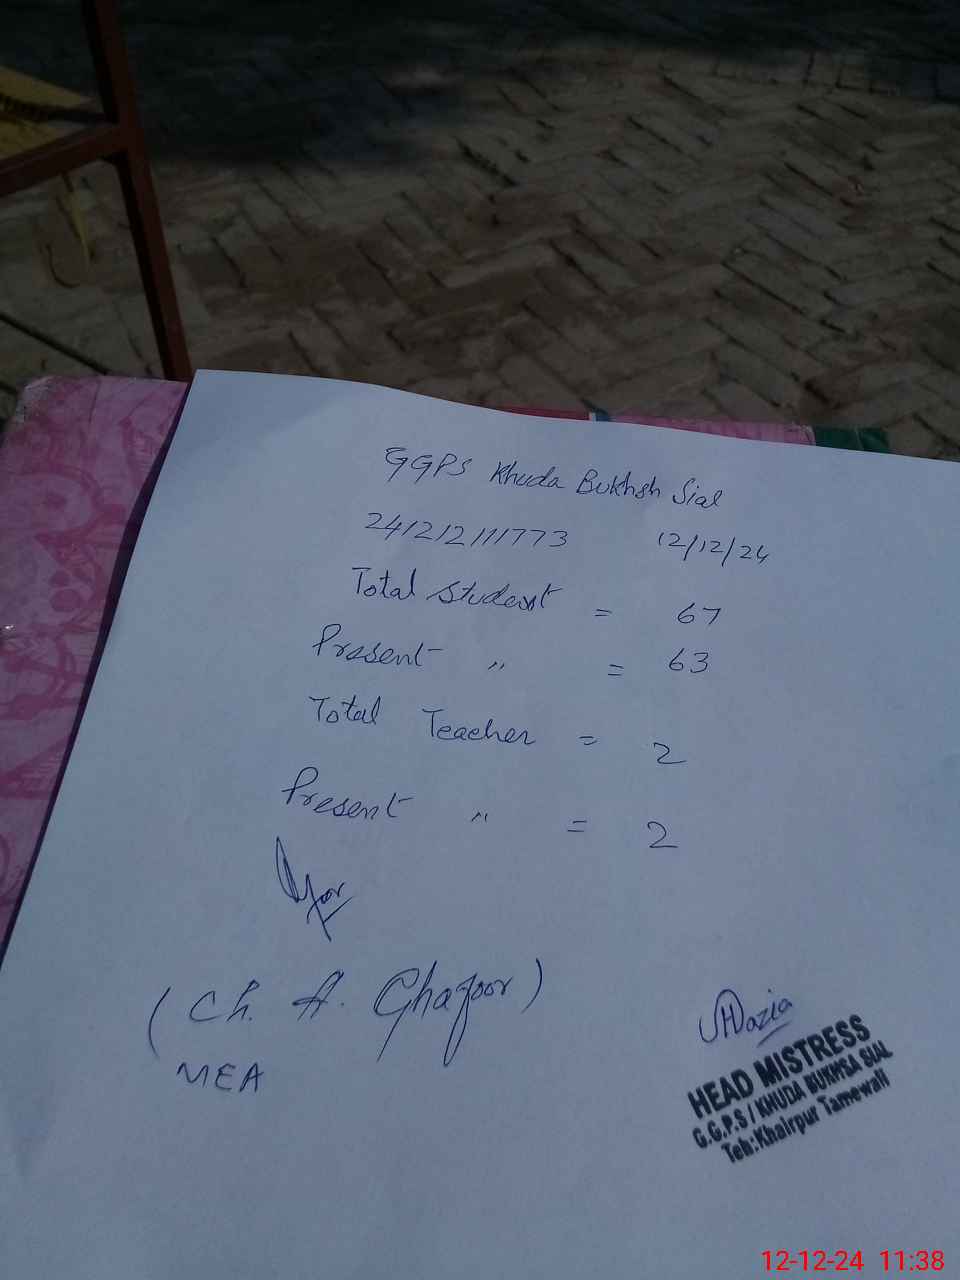 GGPS Khuda Bukhsh Sial
24/2/2111773 12/12/24
Total Student = 67
Present " = 63
Total Teacher = 2
Present " = 2
(Ch. A. Ghafoor)
MEA
HEAD MISTRESS
G.G.P.S / KHUDA BUKHSA SIAL
Teh:Khairpur Tamewali
12-12-24 11:38